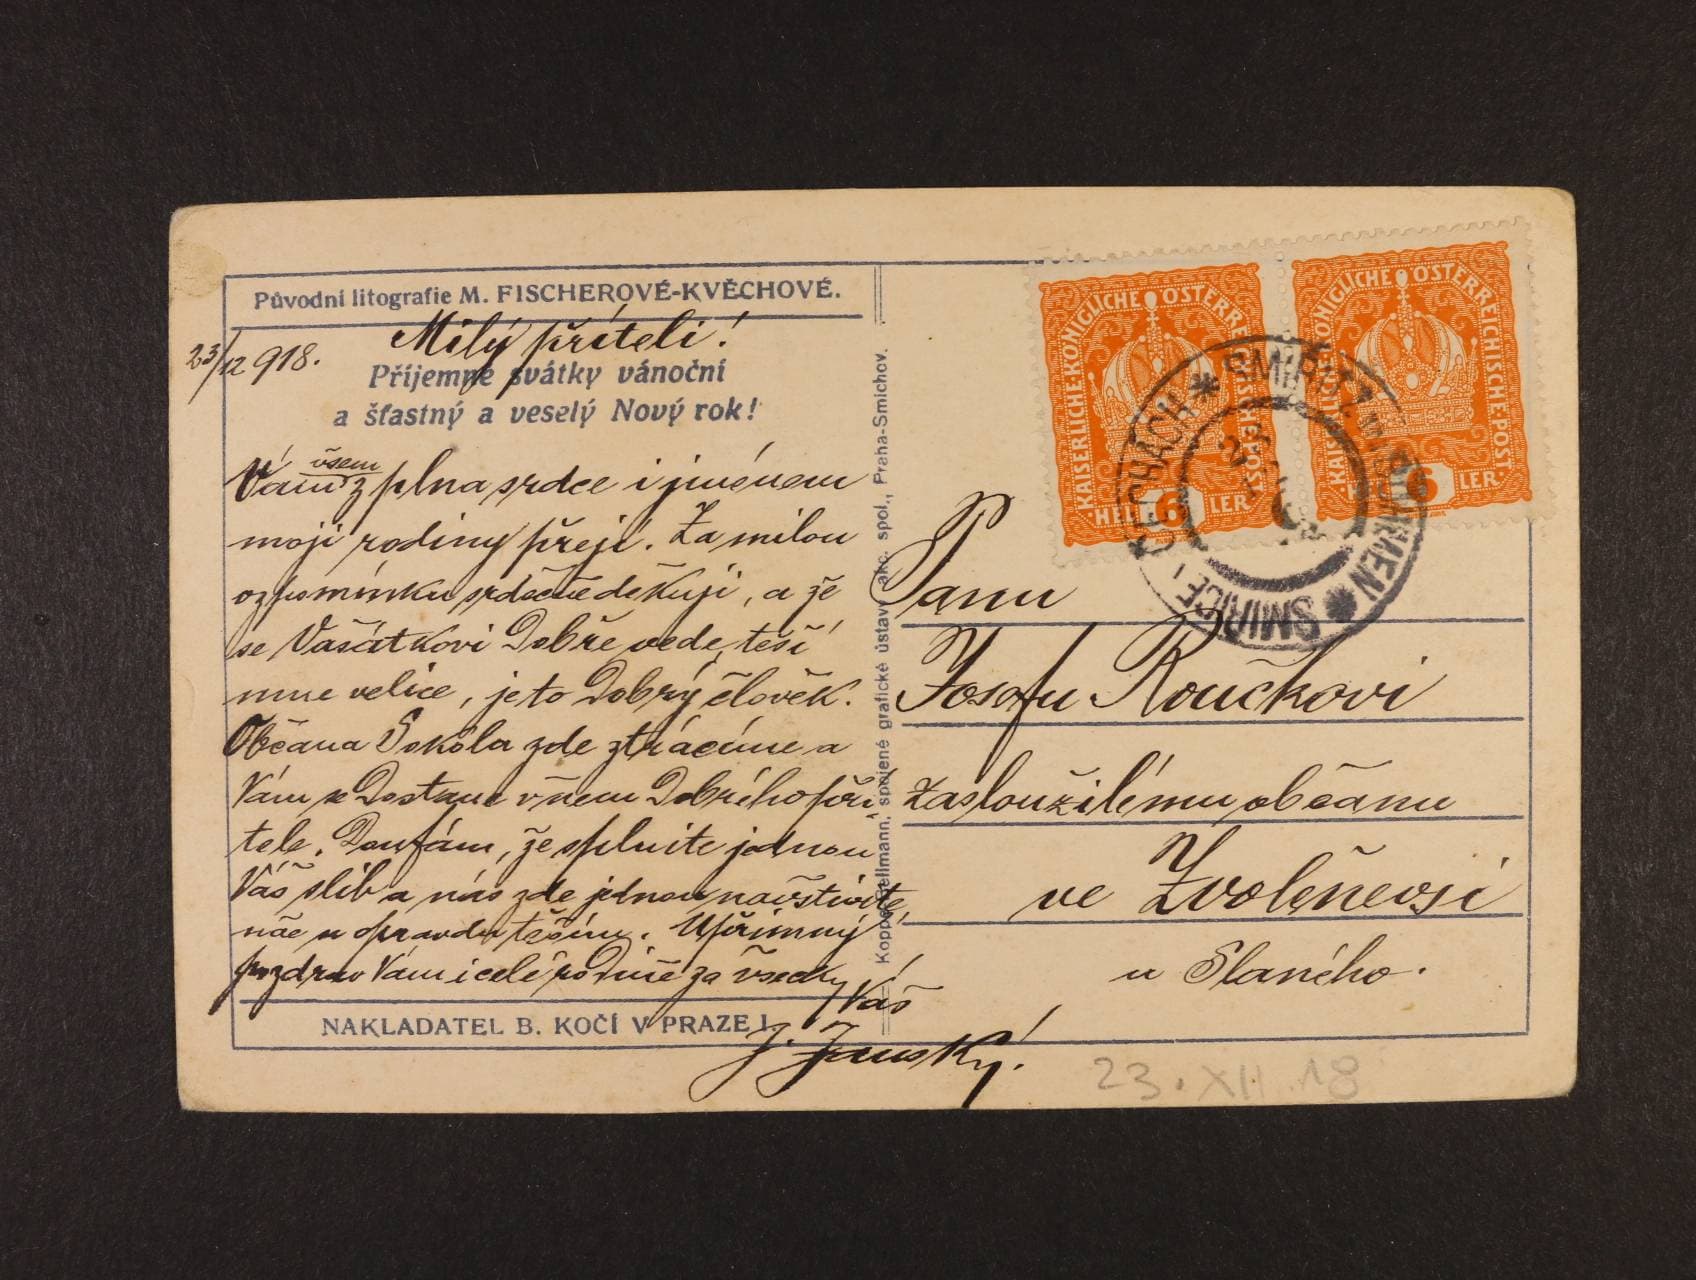 Původní litografie M. FISCHEROVÉ-KVĚCHOVÉ.
23/12 918.
Milý příteli!
Příjemné svátky vánoční
a šťastný a veselý Nový rok!
všem
Vám z plna srdce i jménem
moji rodiny přeji. Za milou
vzpomínku srdečně děkuji, a že
se Vašátkovi Dobře vede, těší
mne velice, je to Dobrý člověk.
Občana Sokola zde ztrácíme a
Vám se Dostane v něm Dobrého pří
tele. Doufám, že splníte jednou
Váš slib a nás zde jednou navštívíte,
nač se opravdu těším. Upřímný
pozdrav Vám i celé roDině za všecky
Váš
J. Janský!
NAKLADATEL B. KOČÍ V PRAZE I.
Koppe-Bellmann, spojené grafické ústavy akc. spol., Praha-Smichov.
KAISERLICHE·KÖNIGLICHE ÖSTERREICHISCHE·POST·
HELLER·
6
KAISERLICHE·KÖNIGLICHE ÖSTERREICHISCHE·POST·
HELLER·
6
SMIŘITZ IN BÖHMEN * SMIŘICE V ČECHÁCH *
Panu
Josefu Roučkovi
zasloužilému občanu
ve Zvoleněvsi
u Slaného.
23. XII 18